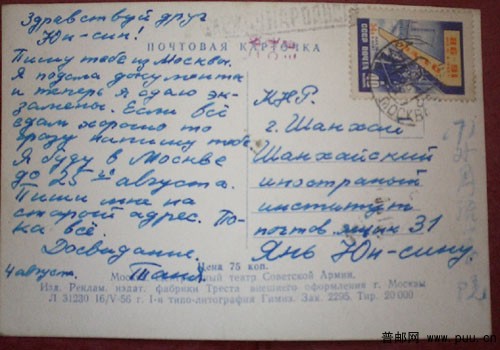 Здравствуй друг
Юн-син!
Пишу тебе из Москвы.
Я подала документы
и теперь я сдаю эк-
замены. Если всё
сдам хорошо то
сразу напишу тебе.
Я буду в Москве
до 25 августа.
Пиши мне на
старый адрес. По-
ка всё.
Досвидание.
4 август. Таня.
ПОЧТОВАЯ КАРТОЧКА
МЕЖДУНАРОДНОЕ
ПОЧТА СССР
40
МОСКВА
К.Н.Р.
г. Шанхай
Шанхайский
иностраный
институт
почтов. ящик 31
Янь Юн-сину.
Цена 75 коп.
Московский театр Советской Армии.
Изд. Реклам. издат. фабрики Треста внешнего оформления г. Москвы
Л 31230 16/V-56 г. 1-я типо-литография Гимиз. Зак. 2295. Тир. 20 000
普邮网 www.puu.cn